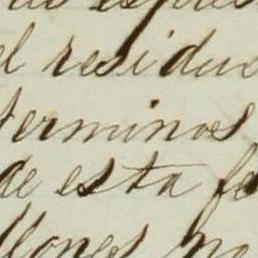 el residuo
terminos
de esta fe
llones no